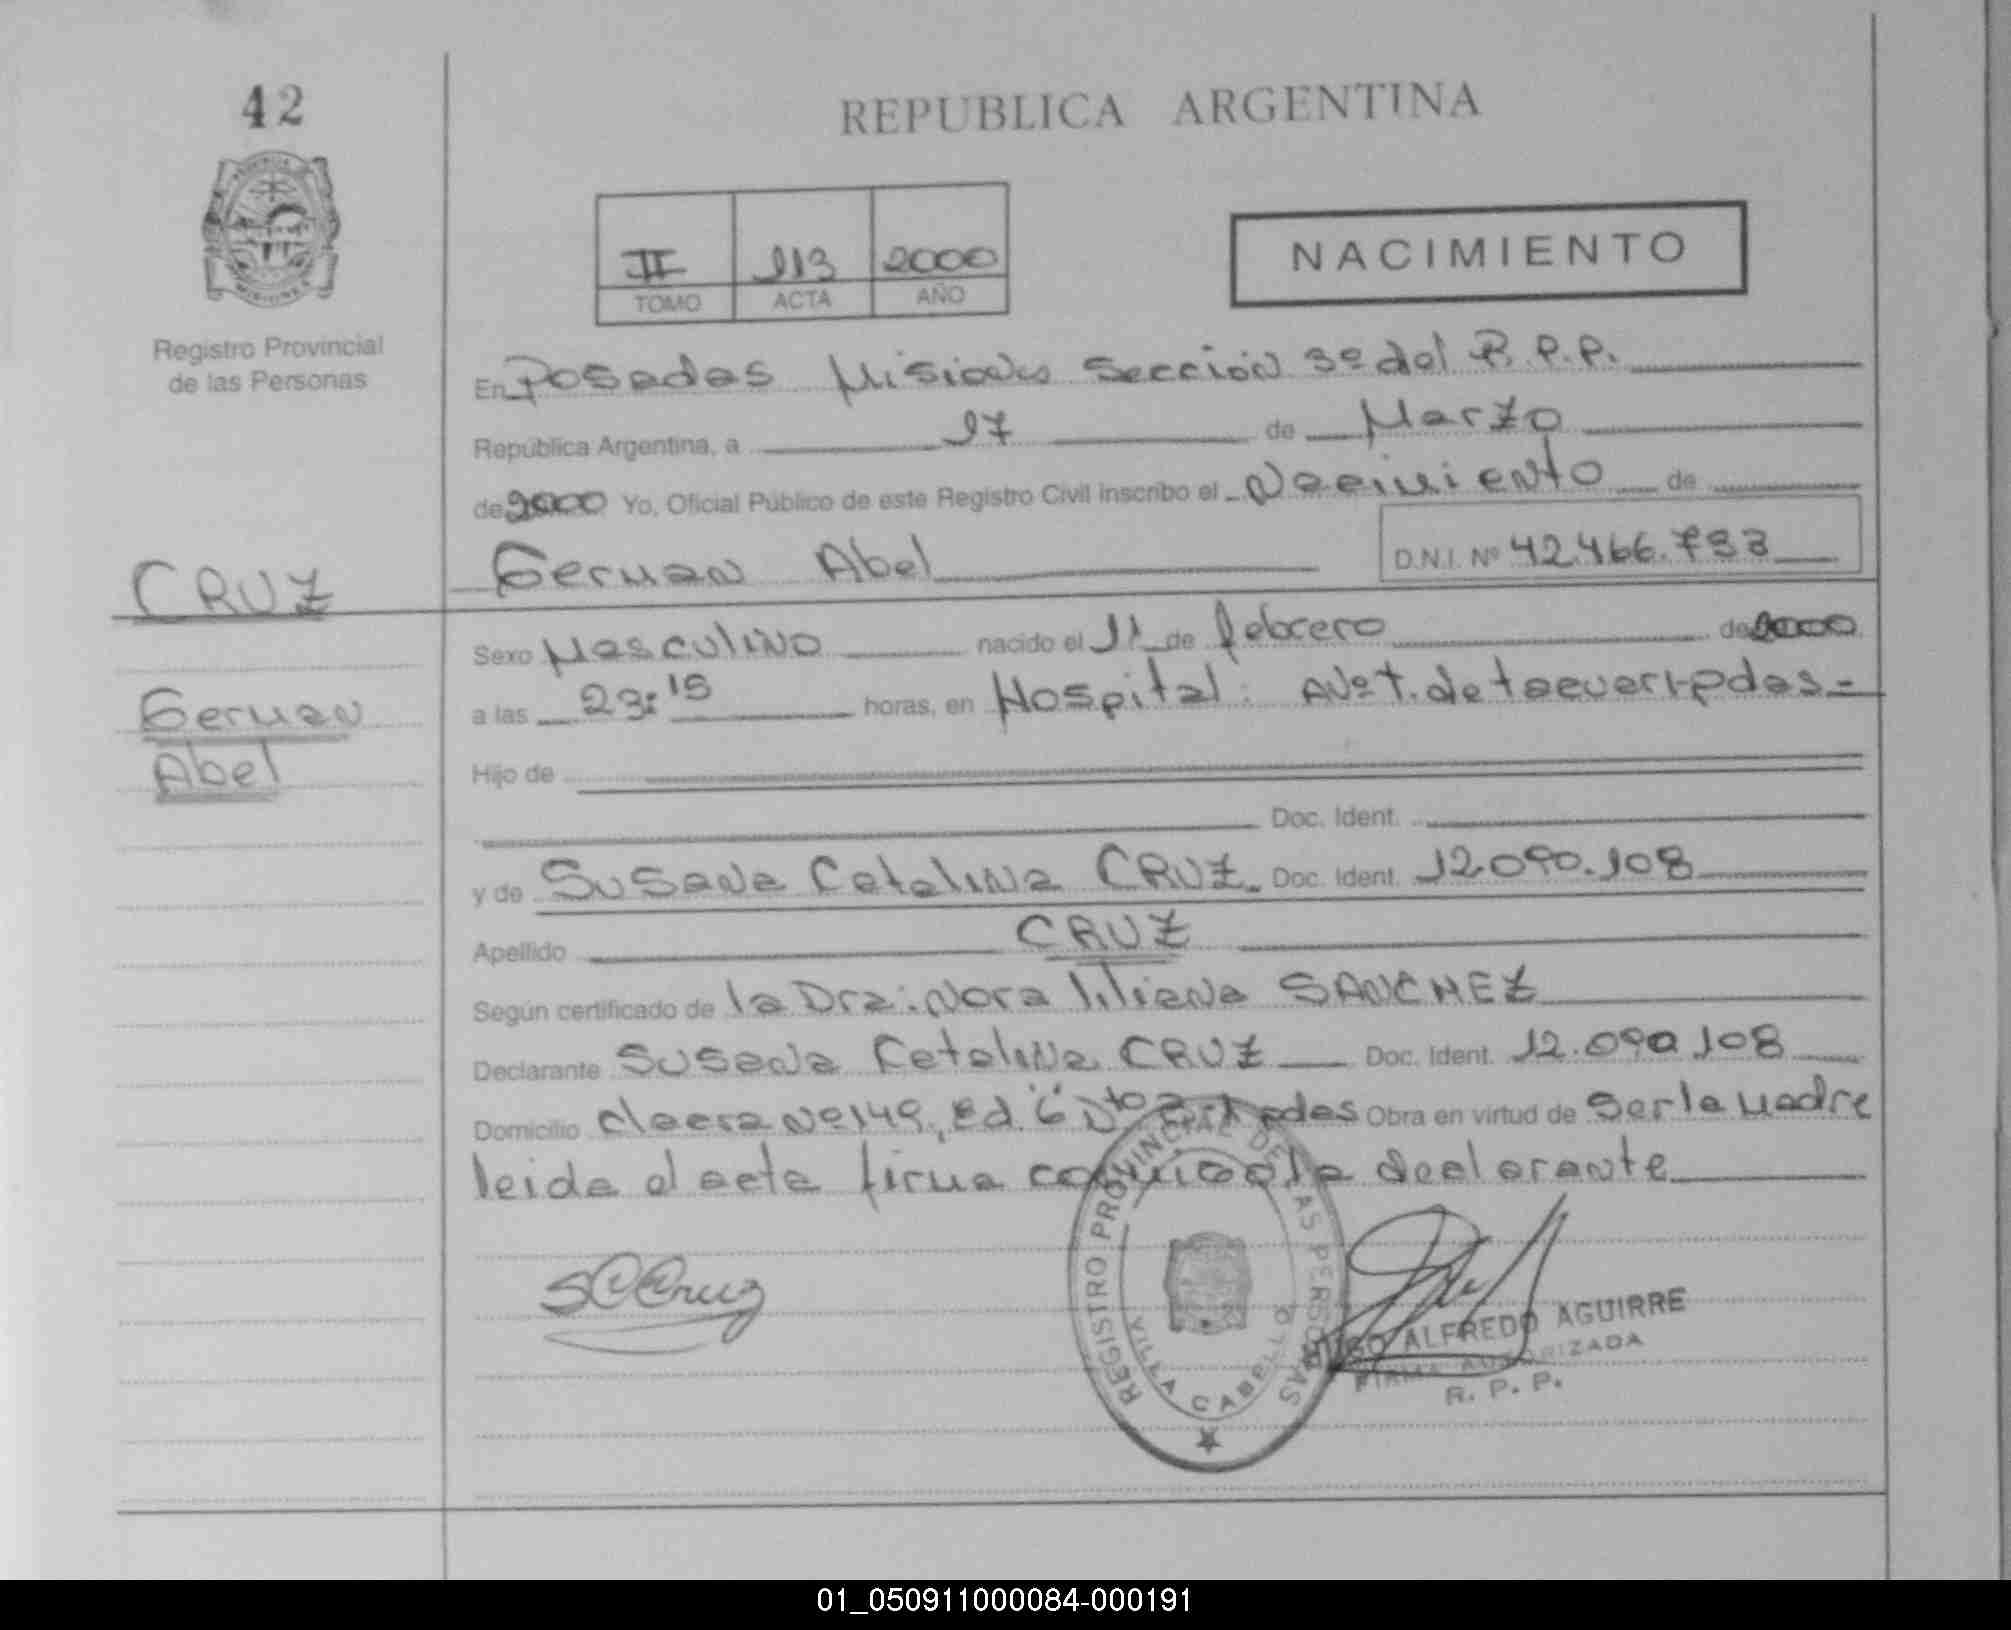 42
REPUBLICA ARGENTINA
II 113 2000
TOMO ACTA AÑO
NACIMIENTO
Registro Provincial
de las Personas
En Posadas Misiones Sección 3º del R.P.P.
República Argentina, a 17 de Marzo
de 2000 Yo, Oficial Público de este Registro Civil inscribo el Nacimiento de
German Abel D.N.I. Nº 42.466.733
CRUZ
German
Abel
Sexo Masculino nacido el 11 de febrero de 2000
a las 23:15 horas, en Hospital:
Hijo de
Doc. Ident.
y de Susana Catalina CRUZ Doc. Ident. 12.090.108
Apellido CRUZ
Según certificado de la Dra: Nora liliana SANCHEZ
Declarante Susana Catalina CRUZ Doc. Ident. 12.090.108
Domicilio chacra Nº 149, Ed. 6 Dto Obra en virtud de ser la madre
leida el acta firma conmigo la declarante
SCCruz
REGISTRO PROVINCIAL DE LAS PERSONAS
VILLA CABELLO
HUGO ALFREDO AGUIRRE
FIRMA AUTORIZADA
R. P. P.
01_050911000084-000191